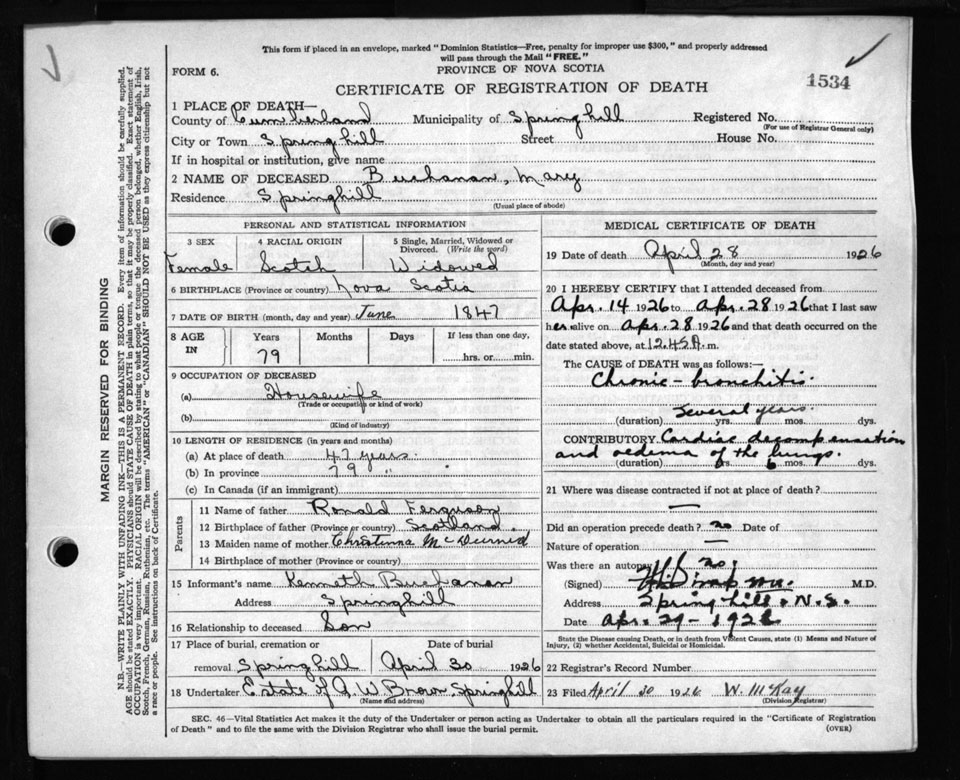 This form if placed in an envelope, marked "Dominion Statistics—Free, penalty for improper use $300," and properly addressed
will pass through the Mail "FREE."
FORM 6.
PROVINCE OF NOVA SCOTIA
1534
CERTIFICATE OF REGISTRATION OF DEATH
1 PLACE OF DEATH—
County of Cumberland Municipality of Springhill Registered No.
(For use of Registrar General only)
City or Town Springhill Street House No.
If in hospital or institution, give name
2 NAME OF DECEASED Buchanan, Mary
Residence Springhill
(Usual place of abode)
PERSONAL AND STATISTICAL INFORMATION
3 SEX 4 RACIAL ORIGIN 5 Single, Married, Widowed or
Divorced. (Write the word)
Female Scotch Widowed
6 BIRTHPLACE (Province or country) Nova Scotia
7 DATE OF BIRTH (month, day and year) June 1847
8 AGE IN Years Months Days If less than one day,
79 hrs. or min.
9 OCCUPATION OF DECEASED
(a) Housewife
(Trade or occupation or kind of work)
(b)
(Kind of industry)
10 LENGTH OF RESIDENCE (in years and months)
(a) At place of death 47 years
(b) In province 79 "
(c) In Canada (if an immigrant)
Parents
11 Name of father Ronald Ferguson
12 Birthplace of father (Province or country) Scotland
13 Maiden name of mother Christinna
14 Birthplace of mother (Province or country)
15 Informant's name Kenneth Buchanan
Address Springhill
16 Relationship to deceased Son
17 Place of burial, cremation or Date of burial
removal Springhill April 30 1926
18 Undertaker Estate of J. W. Brown, Springhill
(Name and address)
MEDICAL CERTIFICATE OF DEATH
19 Date of death April 28 1926
(Month, day and year)
20 I HEREBY CERTIFY that I attended deceased from
Apr. 14 1926 to Apr. 28 1926 that I last saw
her alive on Apr. 28 1926 and that death occurred on the
date stated above, at 12.45 A. m.
The CAUSE OF DEATH was as follows:—
Chronic - bronchitis.
Several years.
(duration) yrs. mos. dys.
CONTRIBUTORY Cardiac decompensation
and oedema of the lungs.
(duration) yrs. 6 mos. dys.
21 Where was disease contracted if not at place of death?
—
Did an operation precede death? no Date of
Nature of operation —
Was there an autopsy? no
(Signed) M.D.
Address Springhill, N.S.
Date Apr. 29 - 1926
State the Disease causing Death, or in death from Violent Causes, state (1) Means and Nature of
Injury, (2) whether Accidental, Suicidal or Homicidal.
22 Registrar's Record Number
23 Filed April 30 1926 W. McKay
(Division Registrar)
SEC. 46—Vital Statistics Act makes it the duty of the Undertaker or person acting as Undertaker to obtain all the particulars required in the "Certificate of Registration
of Death" and to file the same with the Division Registrar who shall issue the burial permit.
(OVER)
MARGIN RESERVED FOR BINDING
N.B.—WRITE PLAINLY WITH UNFADING INK—THIS IS A PERMANENT RECORD. Every item of information should be carefully supplied.
AGE should be stated EXACTLY. PHYSICIANS should STATE CAUSE OF DEATH in plain terms, so that it may be properly classified. Exact statement of
OCCUPATION is very important. RACIAL ORIGIN will be described by stating to what people or tongue the deceased person belonged, whether English, Irish,
Scotch, French, German, Russian, Ruthenian, etc. The terms "AMERICAN" or "CANADIAN" SHOULD NOT BE USED as they express citizenship but not
a race or people. See instructions on back of Certificate.